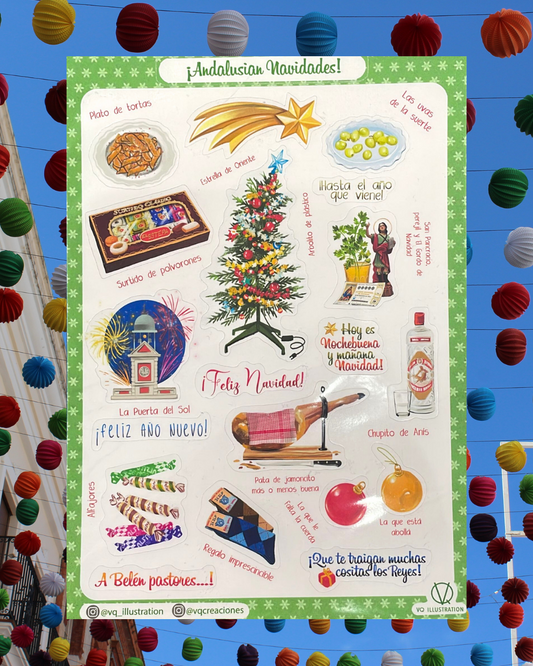 ¡Andalusian Navidades!
Plato de tortas
Estrella de Oriente
Las uvas
de la suerte
¡Hasta el año
que viene!
Surtido de polvorones
Arbolito de plástico
San Pancracio,
perejil y El Gordo de
Navidad
La Puerta del Sol
¡FELIZ AÑO NUEVO!
¡Feliz Navidad!
Hoy es
Nochebuena
y mañana
Navidad!
Chupito de Anís
Pata de jamoncito
más o menos buena
Alfajores
Regalo imprescindible
La que le
falta la cuerda
La que está
abolla
A Belén pastores...!
¡Que te traigan muchas
cositas los Reyes!
@vq_illustration @vqcreaciones
VQ ILLUSTRATION